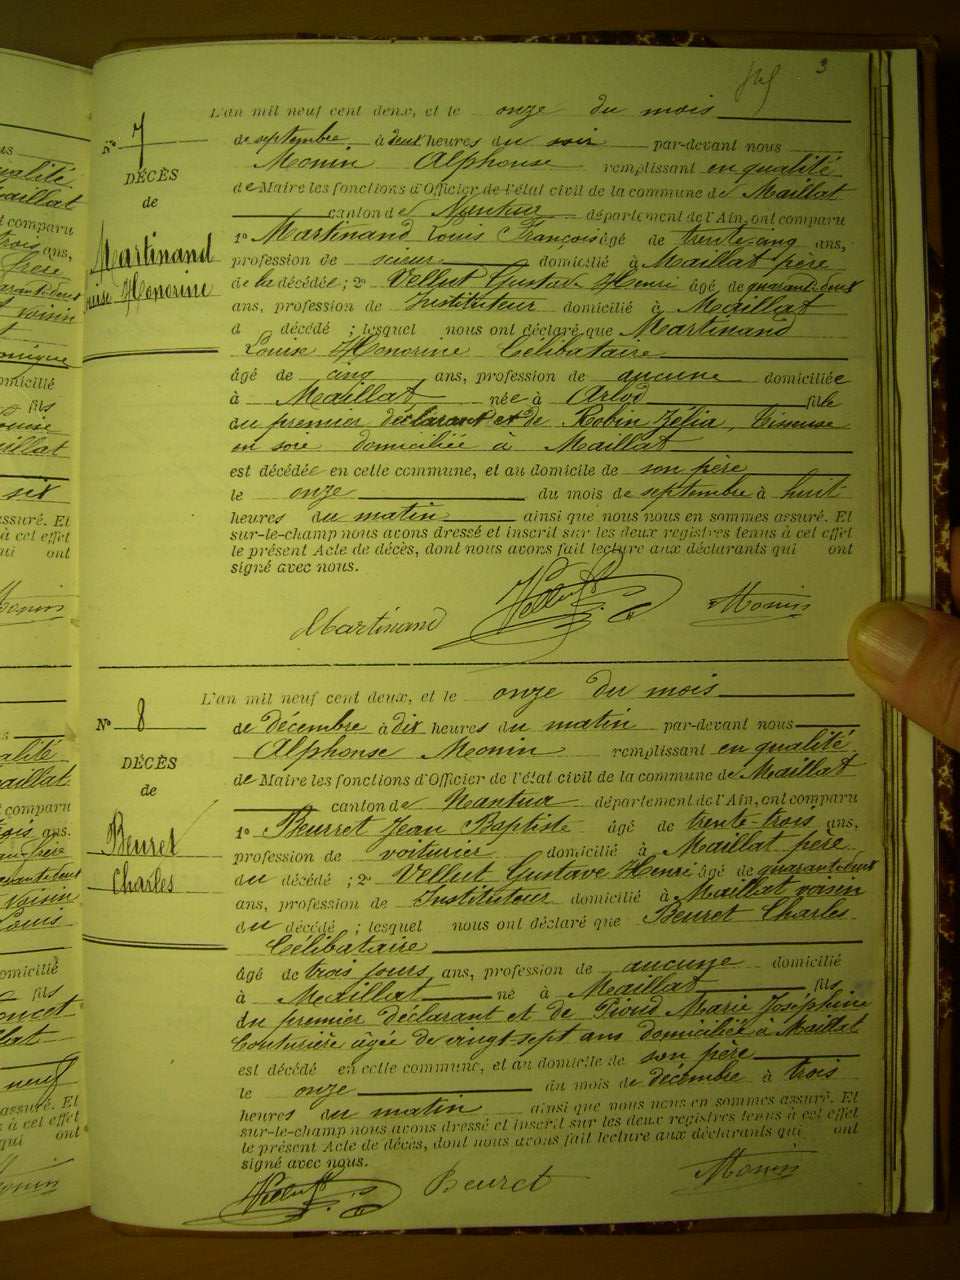 3
L'an mil neuf cent deux, et le onze du mois
No 7
de septembre à deux heures du soir par-devant nous
DÉCÈS
Monin Alphonse remplissant en qualité
de
de Maire les fonctions d'Officier de l'état civil de la commune de Maillat
canton de Nantua département de l'Ain, ont comparu
Martinand
Louise Honorine
1o Martinand Louis François âgé de trente-cinq ans,
profession de scieur domicilié à Maillat père
de la décédée ; 2o Vellut Gustave Henri âgé de quarante-deux
ans, profession de Instituteur domicilié à Maillat
d décédé ; lesquel nous ont déclaré que Martinand
Louise Honorine Célibataire
âgé de cinq ans, profession de aucune domiciliée
à Maillat née à Arlod fille
du premier déclarant et de Robin Zélia, tisseuse
en soie domiciliée à Maillat
est décédée en cette commune, et au domicile de son père
le onze du mois de septembre à huit
heures du matin ainsi que nous nous en sommes assuré. Et
sur-le-champ nous avons dressé et inscrit sur les deux registres tenus à cet effet
le présent Acte de décès, dont nous avons fait lecture aux déclarants qui ont
signé avec nous.
Martinand Vellut Monin
L'an mil neuf cent deux, et le onze du mois
No 8
de décembre à dix heures du matin par-devant nous
DÉCÈS
Alphonse Monin remplissant en qualité
de
de Maire les fonctions d'Officier de l'état civil de la commune de Maillat
canton de Nantua département de l'Ain, ont comparu
Beuret
Charles
1o Beurret Jean Baptiste âgé de trente-trois ans,
profession de voiturier domicilié à Maillat père
du décédé ; 2o Vellut Gustave Henri âgé de quarante-deux
ans, profession de Instituteur domicilié à Maillat voisin
du décédé ; lesquel nous ont déclaré que Beuret Charles
Célibataire
âgé de trois jours ans, profession de aucune domicilié
à Maillat né à Maillat fils
du premier déclarant et de Pioud Marie Joséphine
Couturière âgée de vingt-sept ans domiciliée à Maillat
est décédé en cette commune, et au domicile de son père
le onze du mois de décembre à trois
heures du matin ainsi que nous nous en sommes assuré. Et
sur-le-champ nous avons dressé et inscrit sur les deux registres tenus à cet effet
le présent Acte de décès, dont nous avons fait lecture aux déclarants qui ont
signé avec nous.
Vellut Beuret Monin